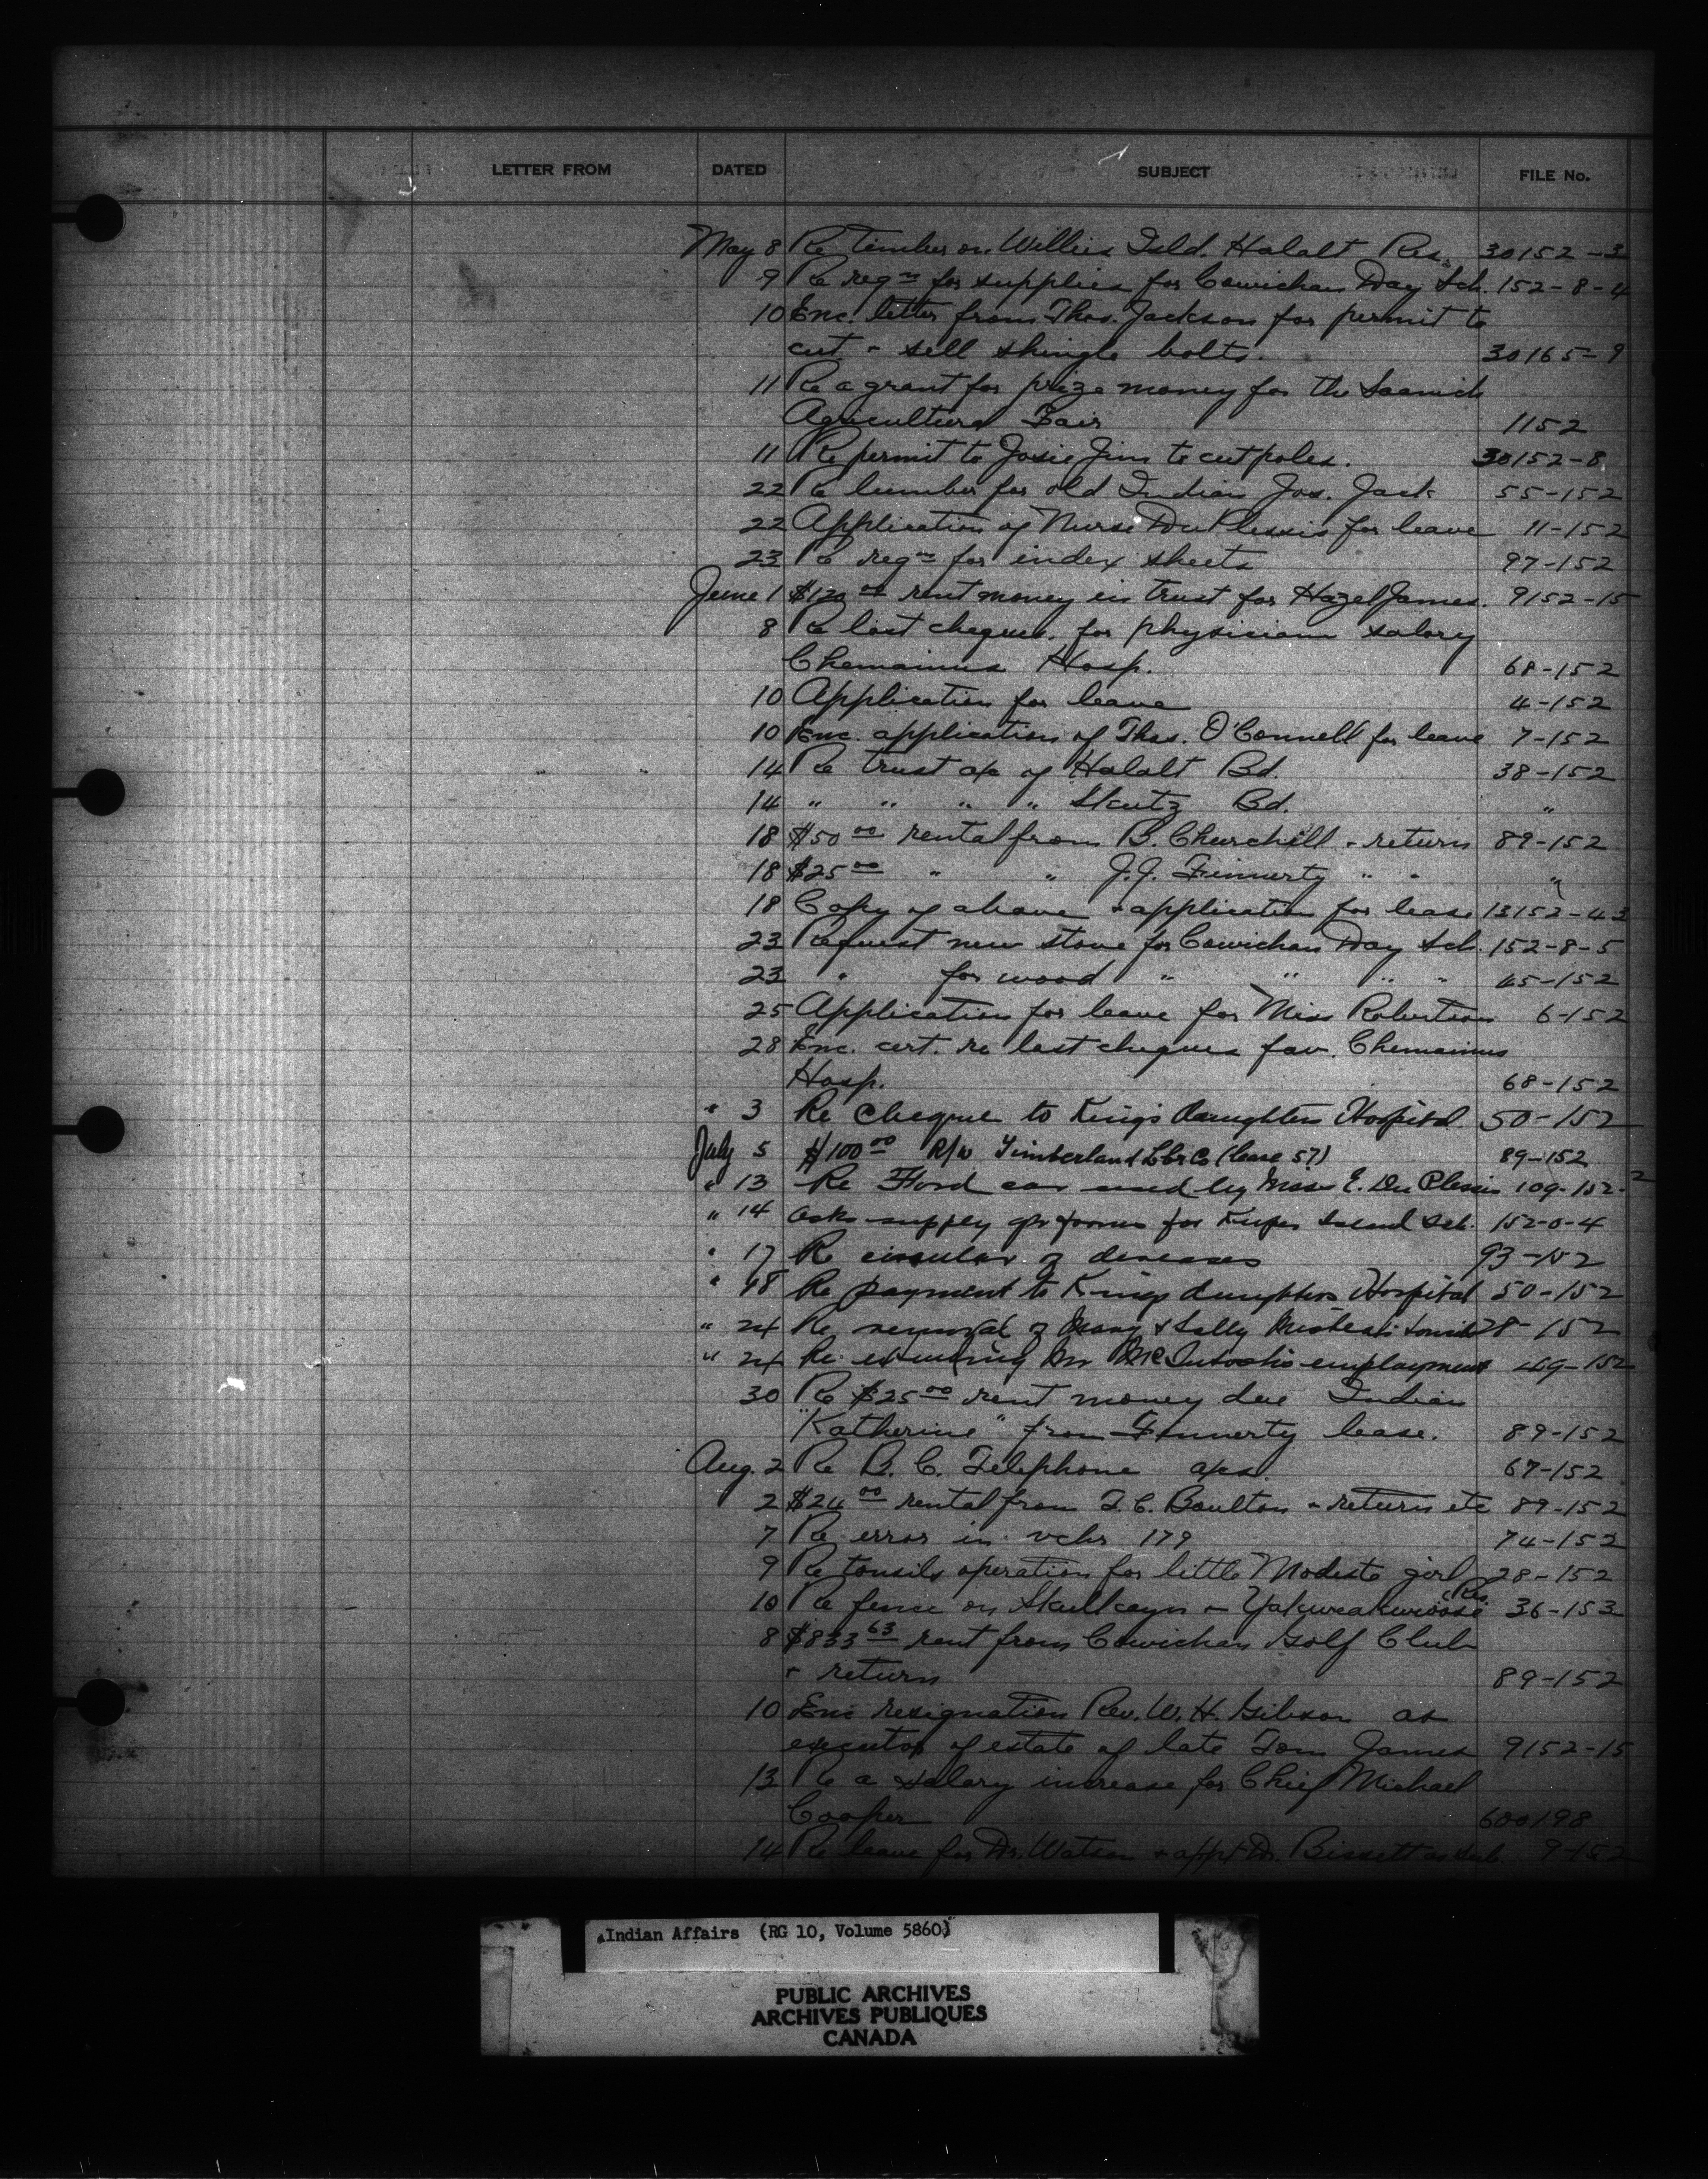 LETTER FROM DATED SUBJECT FILE No.
May 8 Re timber on Willies Isld. Halalt Res. 30152-3
9 Re reqn for supplies for Cowichan Day Sch. 152-8-4
10 Enc. letter from Thos. Jackson for permit to
cut & sell shingle bolts. 30165-9
11 Re a grant for prize money for the Saanich
Agricultural Fair 1152
11 Re permit to Josie Jim to cut poles. 30152-8
22 Re lumber for old Indian Jos. Jack 55-152
22 Application of Nurse Du Plessis for leave 11-152
23 Re reqn for index sheets 97-152
June 1 $120 00 rent money in trust for Hazel James. 9152-15
8 Re lost cheques for physician salary
Chemainus Hosp. 68-152
10 Application for leave 4-152
10 Enc. application of Thos. O'Connell for leave 7-152
14 Re trust a/c of Halalt Bd. 38-152
14 " " " " Skutz Bd. "
18 $50 00 rental from B. Churchill & return 89-152
18 $25 00 " " J.J. Finnerty " " "
18 Copy of above & application for lease 13152-43
23 Request new stove for Cowichan Day Sch. 152-8-5
23 " for wood " " " " 45-152
25 Application for leave for Miss Robertson 6-152
28 Enc. cert. re lost cheques fav. Chemainus
Hosp. 68-152
" 3 Re cheque to King's Daughters Hospital 50-152
July 5 $100 00 R/W Timberland Lbr Co (lease 57) 89-152
" 13 Re Ford car used by Miss E. Du Plessis 109-152-2
" 14 Asks supply of forms for Kuper Island Sch. 152-0-4
" 17 Re circular of diseases 93-152
" 18 Re payment to Kings daughters Hospital 50-152
" 24 Re removal of Mary & Sally 28-152
" 24 Re extending Mr McIntosh's employment 469-152
30 Re $25 00 rent money due Indian
"Katherine" from Finnerty lease. 89-152
Aug. 2 Re B.C. Telephone a/cs. 67-152
2 $24 00 rental from T.C. Boulton & return etc 89-152
7 Re error in vchr 179 74-152
9 Re tonsils operation for little Modeste girl 28-152
10 Re fence on Skulkayn & Yakweakwioose Res. 36-153
8 $833 63 rent from Cowichan Golf Club
& return 89-152
10 Enc resignation Rev. W.H. Gibson as
executor of estate of late Tom James 9152-15
13 Re a salary increase for Chief Michael
Cooper 600198
14 Re leave for Dr. Watson & appt Dr. Bissett as sub. 9-152
Indian Affairs (RG 10, Volume 5860)
PUBLIC ARCHIVES
ARCHIVES PUBLIQUES
CANADA